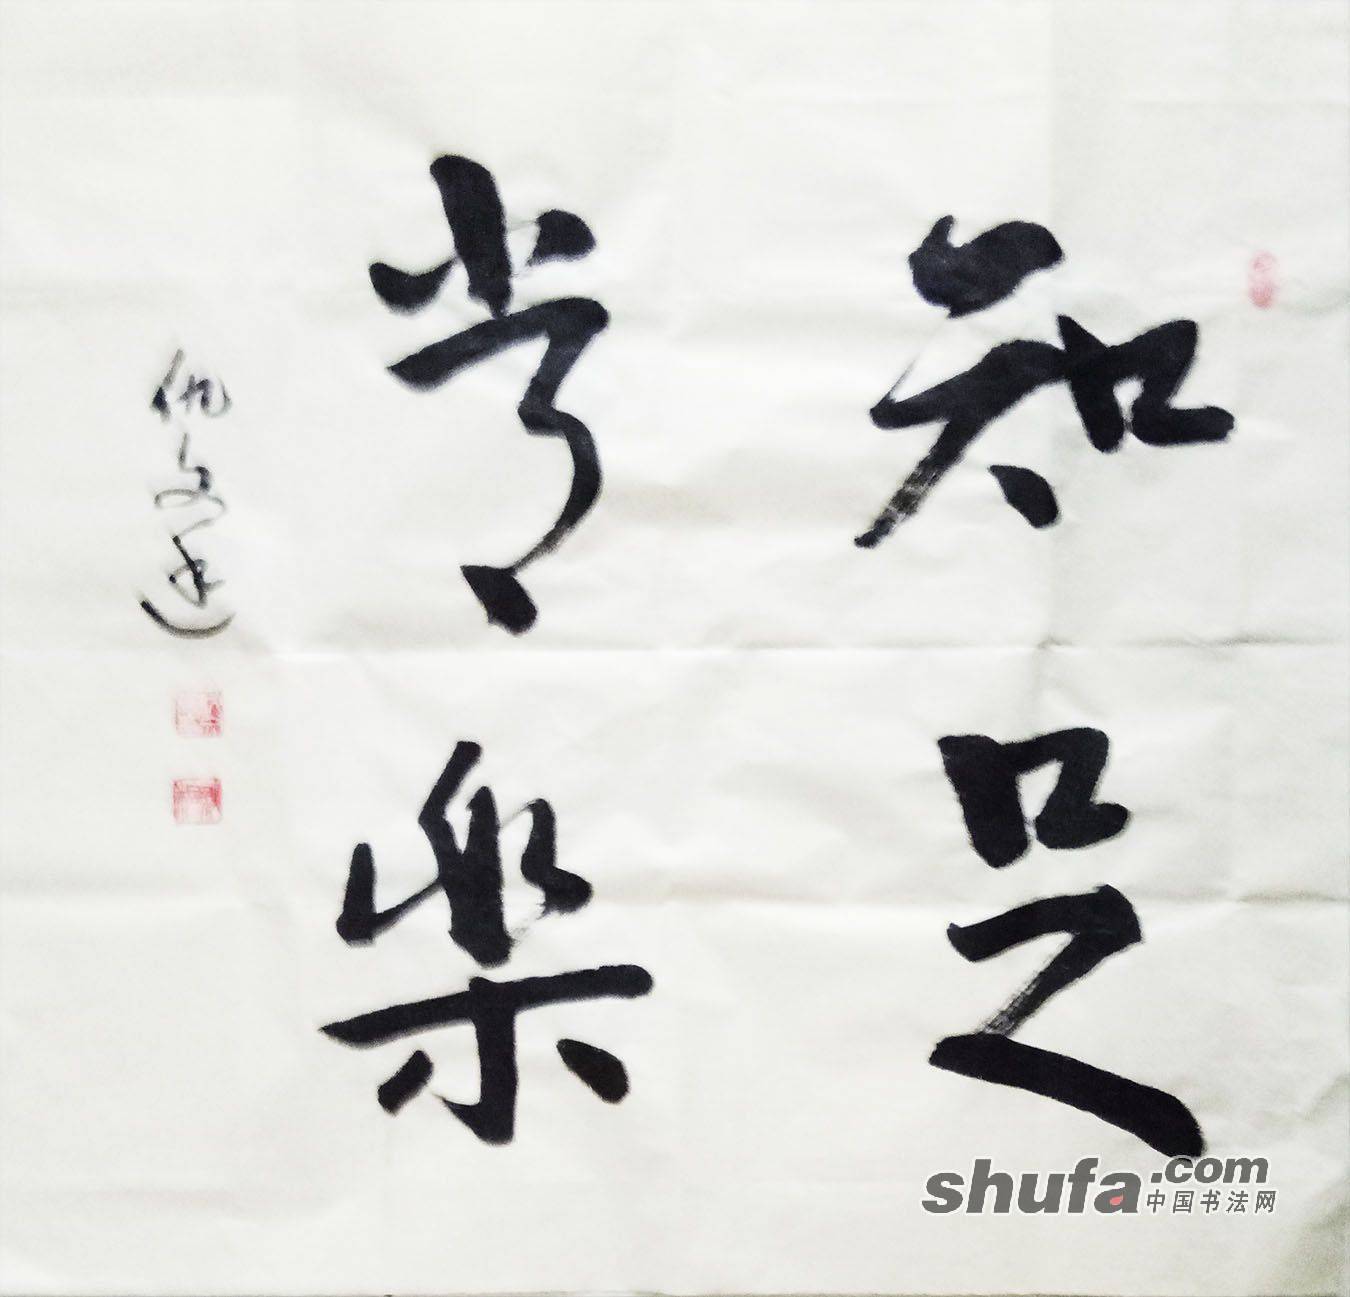 知足
常樂
shufa.com
中国书法网